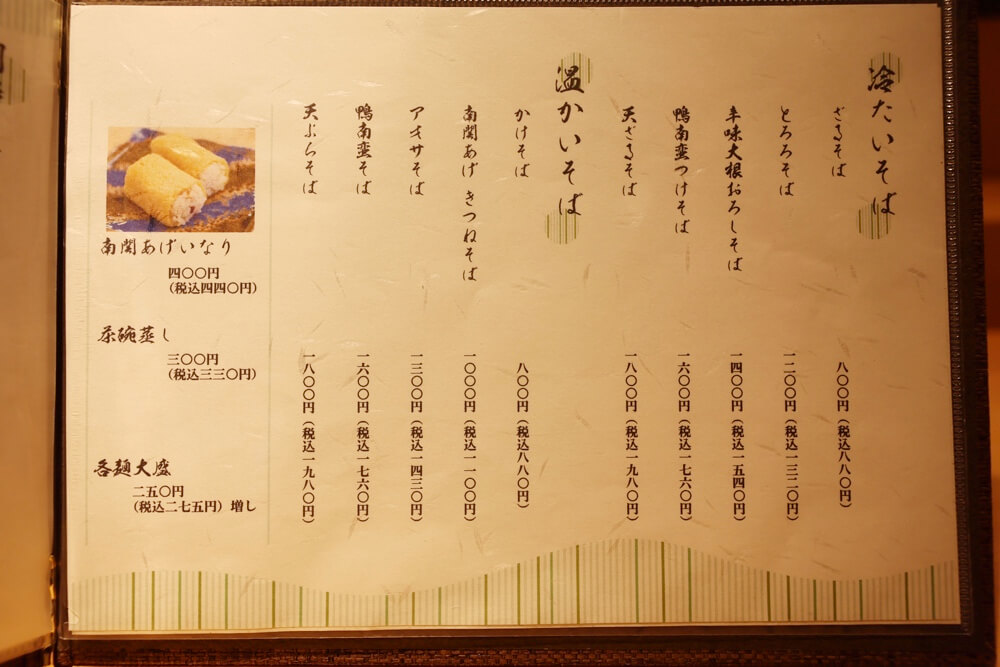 冷たいそば
ざるそば
八〇〇円（税込八八〇円）
とろろそば
一二〇〇円（税込一三二〇円）
辛味大根おろしそば
一四〇〇円（税込一五四〇円）
鴨南蛮つけそば
一六〇〇円（税込一七六〇円）
天ざるそば
一八〇〇円（税込一九八〇円）
温かいそば
かけそば
八〇〇円（税込八八〇円）
南関あげ きつねそば
一〇〇〇円（税込一一〇〇円）
アオサそば
一三〇〇円（税込一四三〇円）
鴨南蛮そば
一六〇〇円（税込一七六〇円）
天ぷらそば
一八〇〇円（税込一九八〇円）
南関あげいなり
四〇〇円
（税込四四〇円）
茶碗蒸し
三〇〇円
（税込三三〇円）
各麺大盛
二五〇円
（税込二七五円）増し